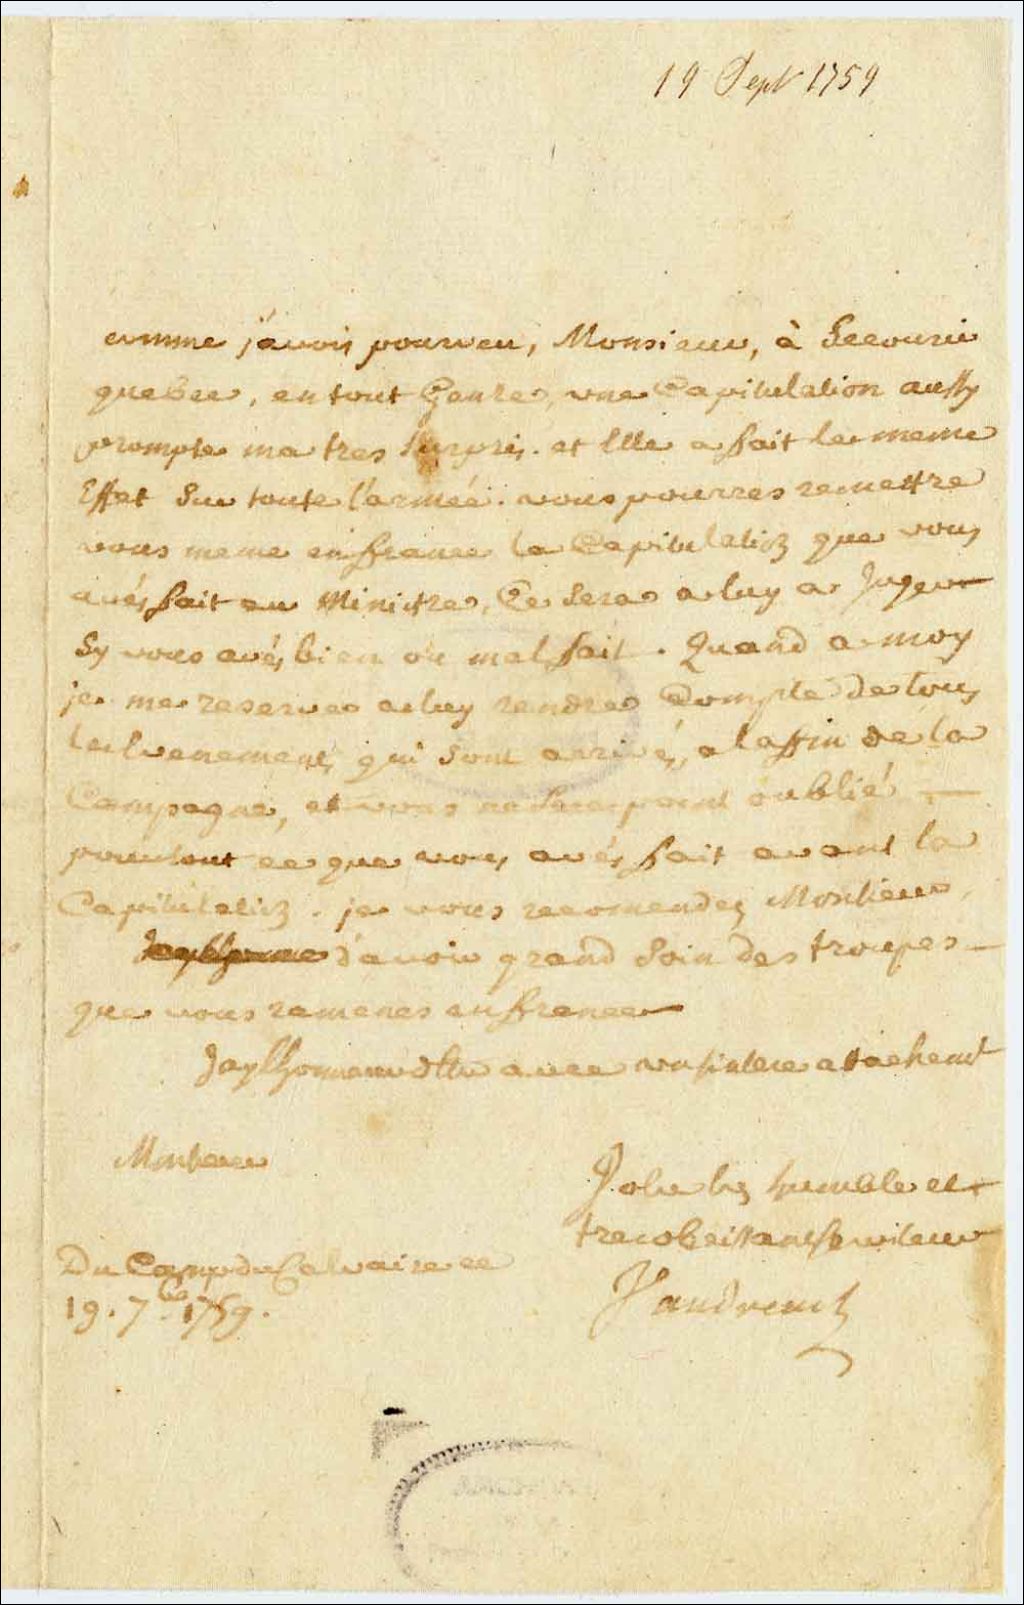 19 Sept 1759
comme j'avois pourveu, Monsieur, à Secourir
quebec, en tout Genre, une Capitulation aussy
prompte ma tres Surpris. et Elle a fait le meme
Effet Sur toute l'armée. vous pourres remettre
vous meme en france la Capitulation que vous
avés fait au Ministre, Ce Sera a luy a Juger
Sy vous avés bien ou mal fait. Quand a moy
je me reserve a luy rendre Compte de tous
les Evenements qui Sont arrivés, a la ffin de la
Campagne, et vous ne Sere point oublié
pour tout ce que vous avés fait avant la
Capitulation. je vous recomende, Monsieur,
d'avoir grand Soin des troupes
que vous ramenes en france
Jay lhonneur d'Etre avec un sincere attachemt
Monsieur
Votre tres humble et
tres obeissant Serviteur
Du Camp du Calvaire ce
19. 7bre 1759.
Vaudreuil